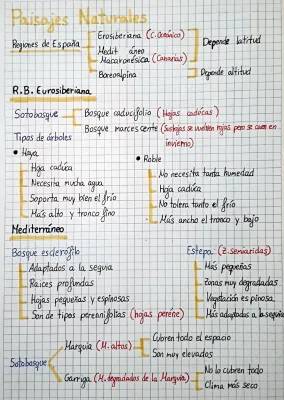 Paisajes Naturales
Regiones de España
Erosiberiana (C. Oceánico)
Medit áneo
Macaronésica (Canarias)
Depende latitud
Boreoalpina
Depende altitud
R.B. Eurosiberiana
Sotobosque
Bosque caducifolio (Hojas caducas)
Bosque marcescente (Sus hojas se vuelven rojas pero se caen en
invierno)
Tipos de árboles
• Haya
Hoja caduca
Necesita mucha agua
Soporta muy bien el frío
Más alto y tronco fino
• Roble
No necesita tanta humedad
Hoja caduca
No tolera tanto el frío
Más ancho el tronco y bajo
Mediterráneo
Bosque esclerófilo
Adaptados a la sequia
Raices profundas
Hojas pequeñas y espinosas
Son de tipos perennifolias (hojas perene)
Estepa (Z. semiaridas)
Más pequeñas
Zonas muy degradadas
Vegetación espinosa
Más adaptados a la sequia
Sotobosque
Marquia (M. altos)
Cubren todo el espacio
Son muy elevados
Garriga (M. degradados de la Marquia)
No lo cubren todo
Clima más seco